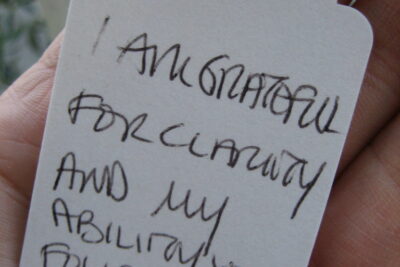 I AM GRATEFUL
FOR CLARITY
AND MY
ABILITY